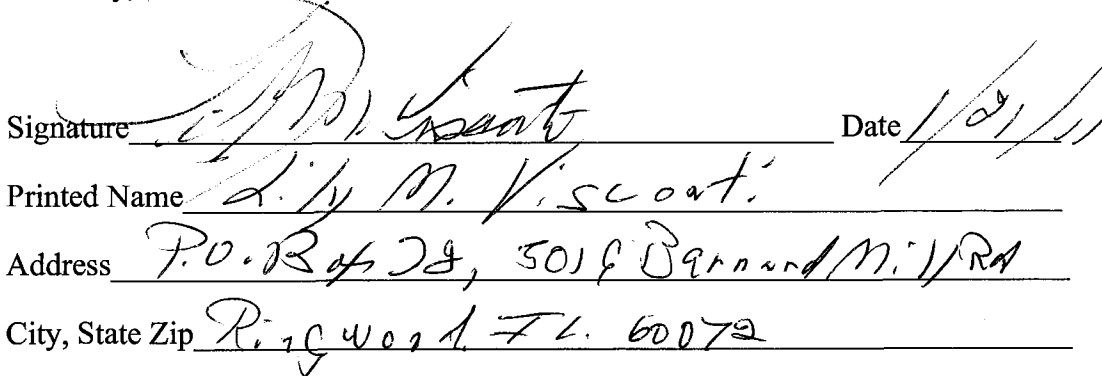 Signature Lily M. Visconti Date 1/21/11
Printed Name Lily M. Visconti
Address P.O. Box 72, 5019 Barnard Mill Rd
City, State Zip Ringwood IL. 60072